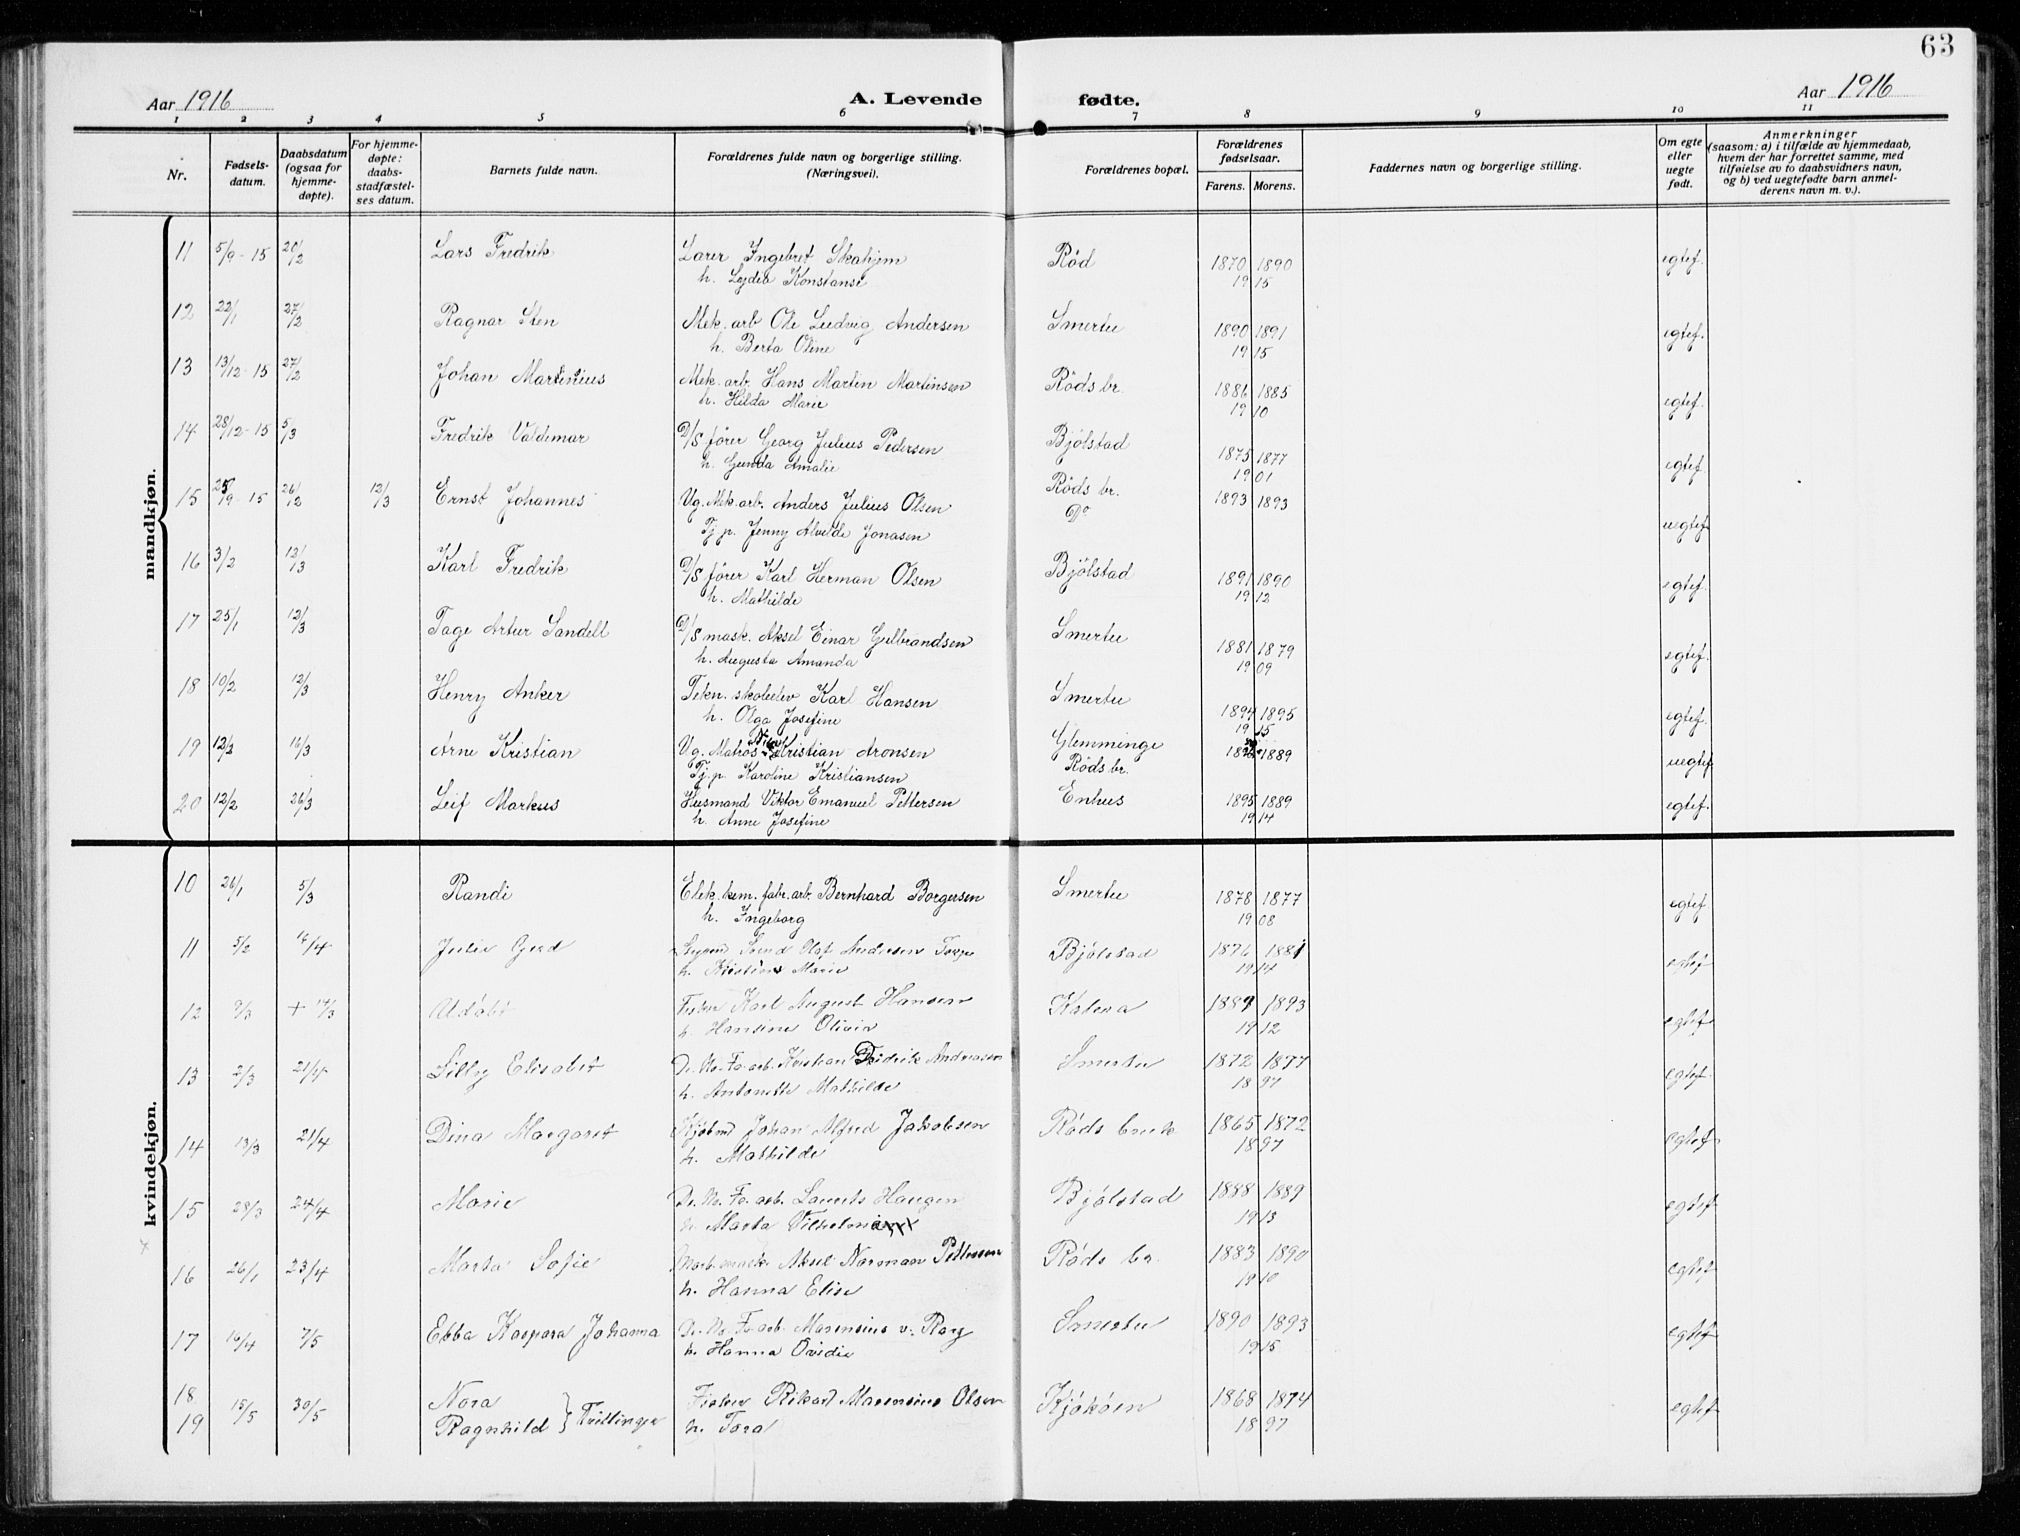 63
Aar 1916 A. Levende fødte. Aar 1916
1 2 3 4 5 6 7 8 9 10 11
Nr. Fødsels-datum. Daabsdatum (ogsaa for hjemme-døpte). For hjemme-døpte: daabs-stadfæstel-ses datum. Barnets fulde navn. Forældrenes fulde navn og borgerlige stilling. (Næringsvei). Forældrenes bopæl. Forældrenes fødselsaar. Farens. Morens. Faddernes navn og borgerlige stilling. Om egte eller uegte født. Anmerkninger (saasom: a) i tilfælde av hjemmedaab, hvem der har forrettet samme, med tilføielse av to daabsvidners navn, og b) ved uegtefødte barn anmel-derens navn m. v.).
mandkjøn.
11 5/9-15 20/2 Lars Fredrik Lærer Ingebret Skahjem Rød 1870 1890 egtef.
h. Lydia Konstanse 19 15
12 22/1 27/2 Ragnar Sten Mek. arb Ole Ludvig Andersen Smertu 1890 1891 egtef.
h. Berta Oline 19 15
13 13/12-15 27/2 Johan Martinius Mek. arb. Hans Martin Martinsen Røds br. 1886 1885 egtef.
h. Hilda Marie 19 10
14 28/12-15 5/3 Fredrik Valdemar D/S fører Georg Julius Pedersen Bjølstad 1875 1877 egtef.
h. Gunda Amalie 19 01
15 25/9-15 26/12 12/3 Ernst Johannes Ug. Mek. arb. Anders Julius Olsen Røds br. 1893 1893 uegtef
Tj. p. Jenny Alvilde Jonasen Do
16 3/2 12/3 Karl Fredrik D/S fører Karl Herman Olsen Bjølstad 1891 1890 egtef.
h. Mathilde 19 12
17 25/1 12/3 Tage Artur Sandell D/S mask. Aksel Einar Gulbrandsen Smertu 1881 1879 egtef.
h. Augusta Amanda 19 09
18 10/2 12/3 Henry Anker Tekn. skoleelev Karl Hansen Smertu 1894 1895 egtef.
h. Olga Josefine 19 15
19 12/2 16/3 Arne Kristian Ug. Matros Kristian Aronsen Glemminge 1889 uegtef
Tj. p. Karoline Kristiansen Røds br.
20 12/2 26/3 Leif Markus Husmand Viktor Emanuel Pettersen Enhus 1895 1889 egtef.
h. Anne Josefine 19 14
kvindekjøn.
10 26/1 5/3 Randi Elek. kem. fabr. arb. Bernhard Borgersen Smertu 1878 1877 egtef
h. Ingeborg 19 08
11 5/2 14/4 Julie Gerd Svend Olaf Andersen Torp Bjølstad 1876 1881 egtef
h. Kristine Marie 19 14
12 9/3 + 14/3 Udøbt Fisker Karl August Hansen Katena 1889 1893 egtef
h. Hansine Olivia 19 12
13 2/3 21/4 Lilly Elisabet De. No. Fa. arb. Kristian Fredrik Andreasen Smertu 1872 1877 egtef.
h. Antonette Mathilde 18 97
14 13/3 21/4 Dina Margaret Kjøbmd Johan Alfred Jakobsen Røds bruk 1865 1872 egtef
h. Mathilde 18 97
15 28/3 24/4 Marie De. No. Fa. arb. Laurits Haugen Bjølstad 1888 1889 egtef
h. Marta Vilhelmine 19 13
16 26/1 23/4 Marta Sofie Aksel Norman Pettersen Røds br. 1883 1890 egtef
h. Hanna Elise 19 10
17 16/4 7/5 Ebba Kaspara Johanna De. No. Fa. arb. Marensius v. Smertu 1890 1893 egtef
h. Hanna Ovedie 19 15
18 15/5 30/5 Nora } Fisker Rikard Marensius Olsen Kjøkøen 1868 1874 egtef
19 Ragnhild } Trillinger h. Tora 18 97